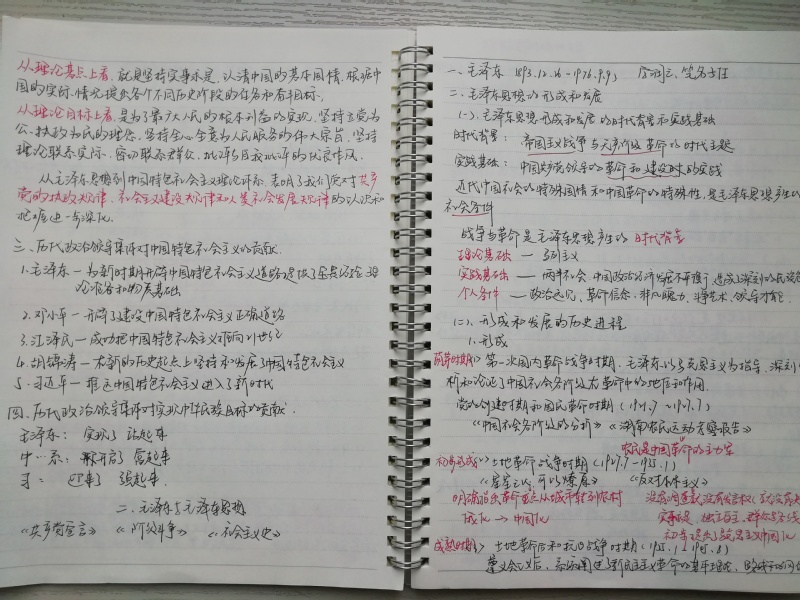 从理论基点上看,就是坚持实事求是,认清中国的基本国情,根据中
国的实际情况提出各个不同历史阶段的任务和奋斗目标。
从理论目标上看,是为了最广大人民的根本利益的实现,坚持立党为
公,执政为民的理念,坚持全心全意为人民服务的伟大宗旨,坚持
理论联系实际,密切联系群众,批评与自我批评的优良作风。
从毛泽东思想到中国特色社会主义理论体系,表明了我们党对共产
党的执政规律、社会主义建设规律和人类社会发展规律的认识和
把握进一步深化.
三、历代政治领导集体对中国特色社会主义的贡献.
1.毛泽东—为新时期开辟中国特色社会主义道路提供了宝贵经验理
论准备和物质基础
2.邓小平—开辟了建设中国特色社会主义正确道路
3.江泽民—成功把中国特色社会主义推向21世纪
4.胡锦涛—在新的历史起点上坚持和发展了中国特色社会主义
5.习近平—推进中国特色社会主义进入了新时代
四.历代政治领导集体对实现中华民族目标的贡献.
毛泽东:实现了站起来
中…系:开启了富起来
习:迎来了强起来.
二.毛泽东与毛泽东思想
《共产党宣言》《阶级斗争》《社会主义史》
一、毛泽东 1893.12.26-1976.9.9
二、毛泽东思想的形成和发展
(一).毛泽东思想形成和发展的时代背景和实践基础
时代背景:帝国主义战争与无产阶级革命的时代主题
实践基础:中国共产党领导的革命和建设的实践
近代中国社会的特殊国情和中国革命的特殊性,是毛泽东思想产生的
社会条件
战争与革命是毛泽东思想产生的时代背景
理论基础—马列主义
实践基础—两半社会 中国政治经济发展不平衡,造成了深刻的民族
个人条件—政治远见、革命信念、非凡魄力、斗争艺术、领导才能.
(二)、形成和发展的历史进程
1.形成
萌芽时期》第一次国内革命战争时期.毛泽东以马克思主义为指导,深刻
析和论述了中国社会各阶级在革命中的地位和作用.
党的创建时期和国民革命时期(1921.7~1927.7)
《中国社会各阶级的分析》《湖南农民运动考察报告》
农民是中国革命的主力军
初步形成》土地革命战争时期(1927.7-1935.1)
《星星之火,可以燎原》《反对本本主义》
明确指出革命重点从城市转到农村 没有调查就没有发言权
俄化→中国化
成熟时期》土地革命后和抗日战争时期(1935.1~1945.8)
遵义会议后,系统阐述了新民主主义革命的基本理论,